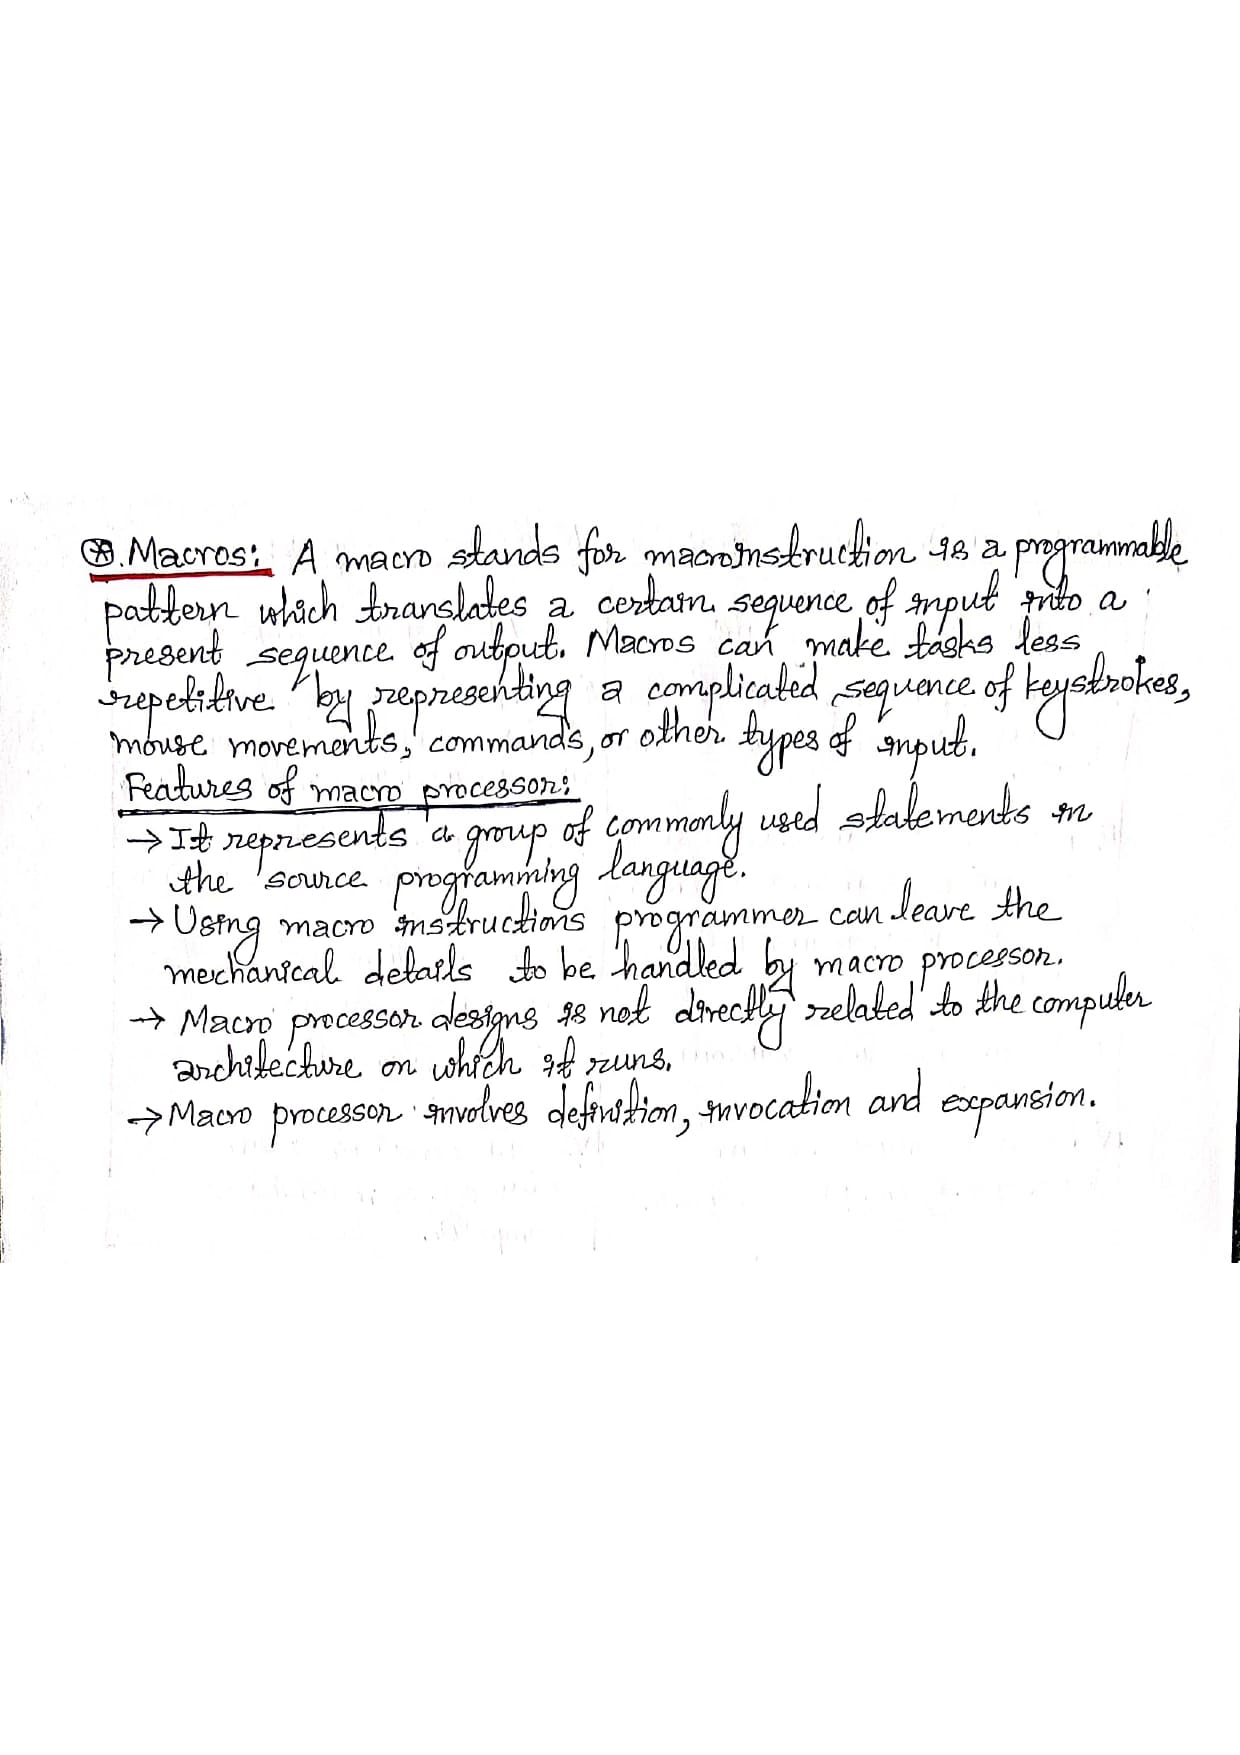 ⊛. Macros: A macro stands for macroinstruction is a programmable
pattern which translates a certain sequence of input into a
present sequence of output. Macros can make tasks less
repetitive by representing a complicated sequence of keystrokes,
mouse movements, commands, or other types of input.
Features of macro processor:
→ It represents a group of commonly used statements in
the source programming language.
→ Using macro instructions programmer can leave the
mechanical details to be handled by macro processor.
→ Macro processor designs is not directly related to the computer
architecture on which it runs.
→ Macro processor involves definition, invocation and expansion.